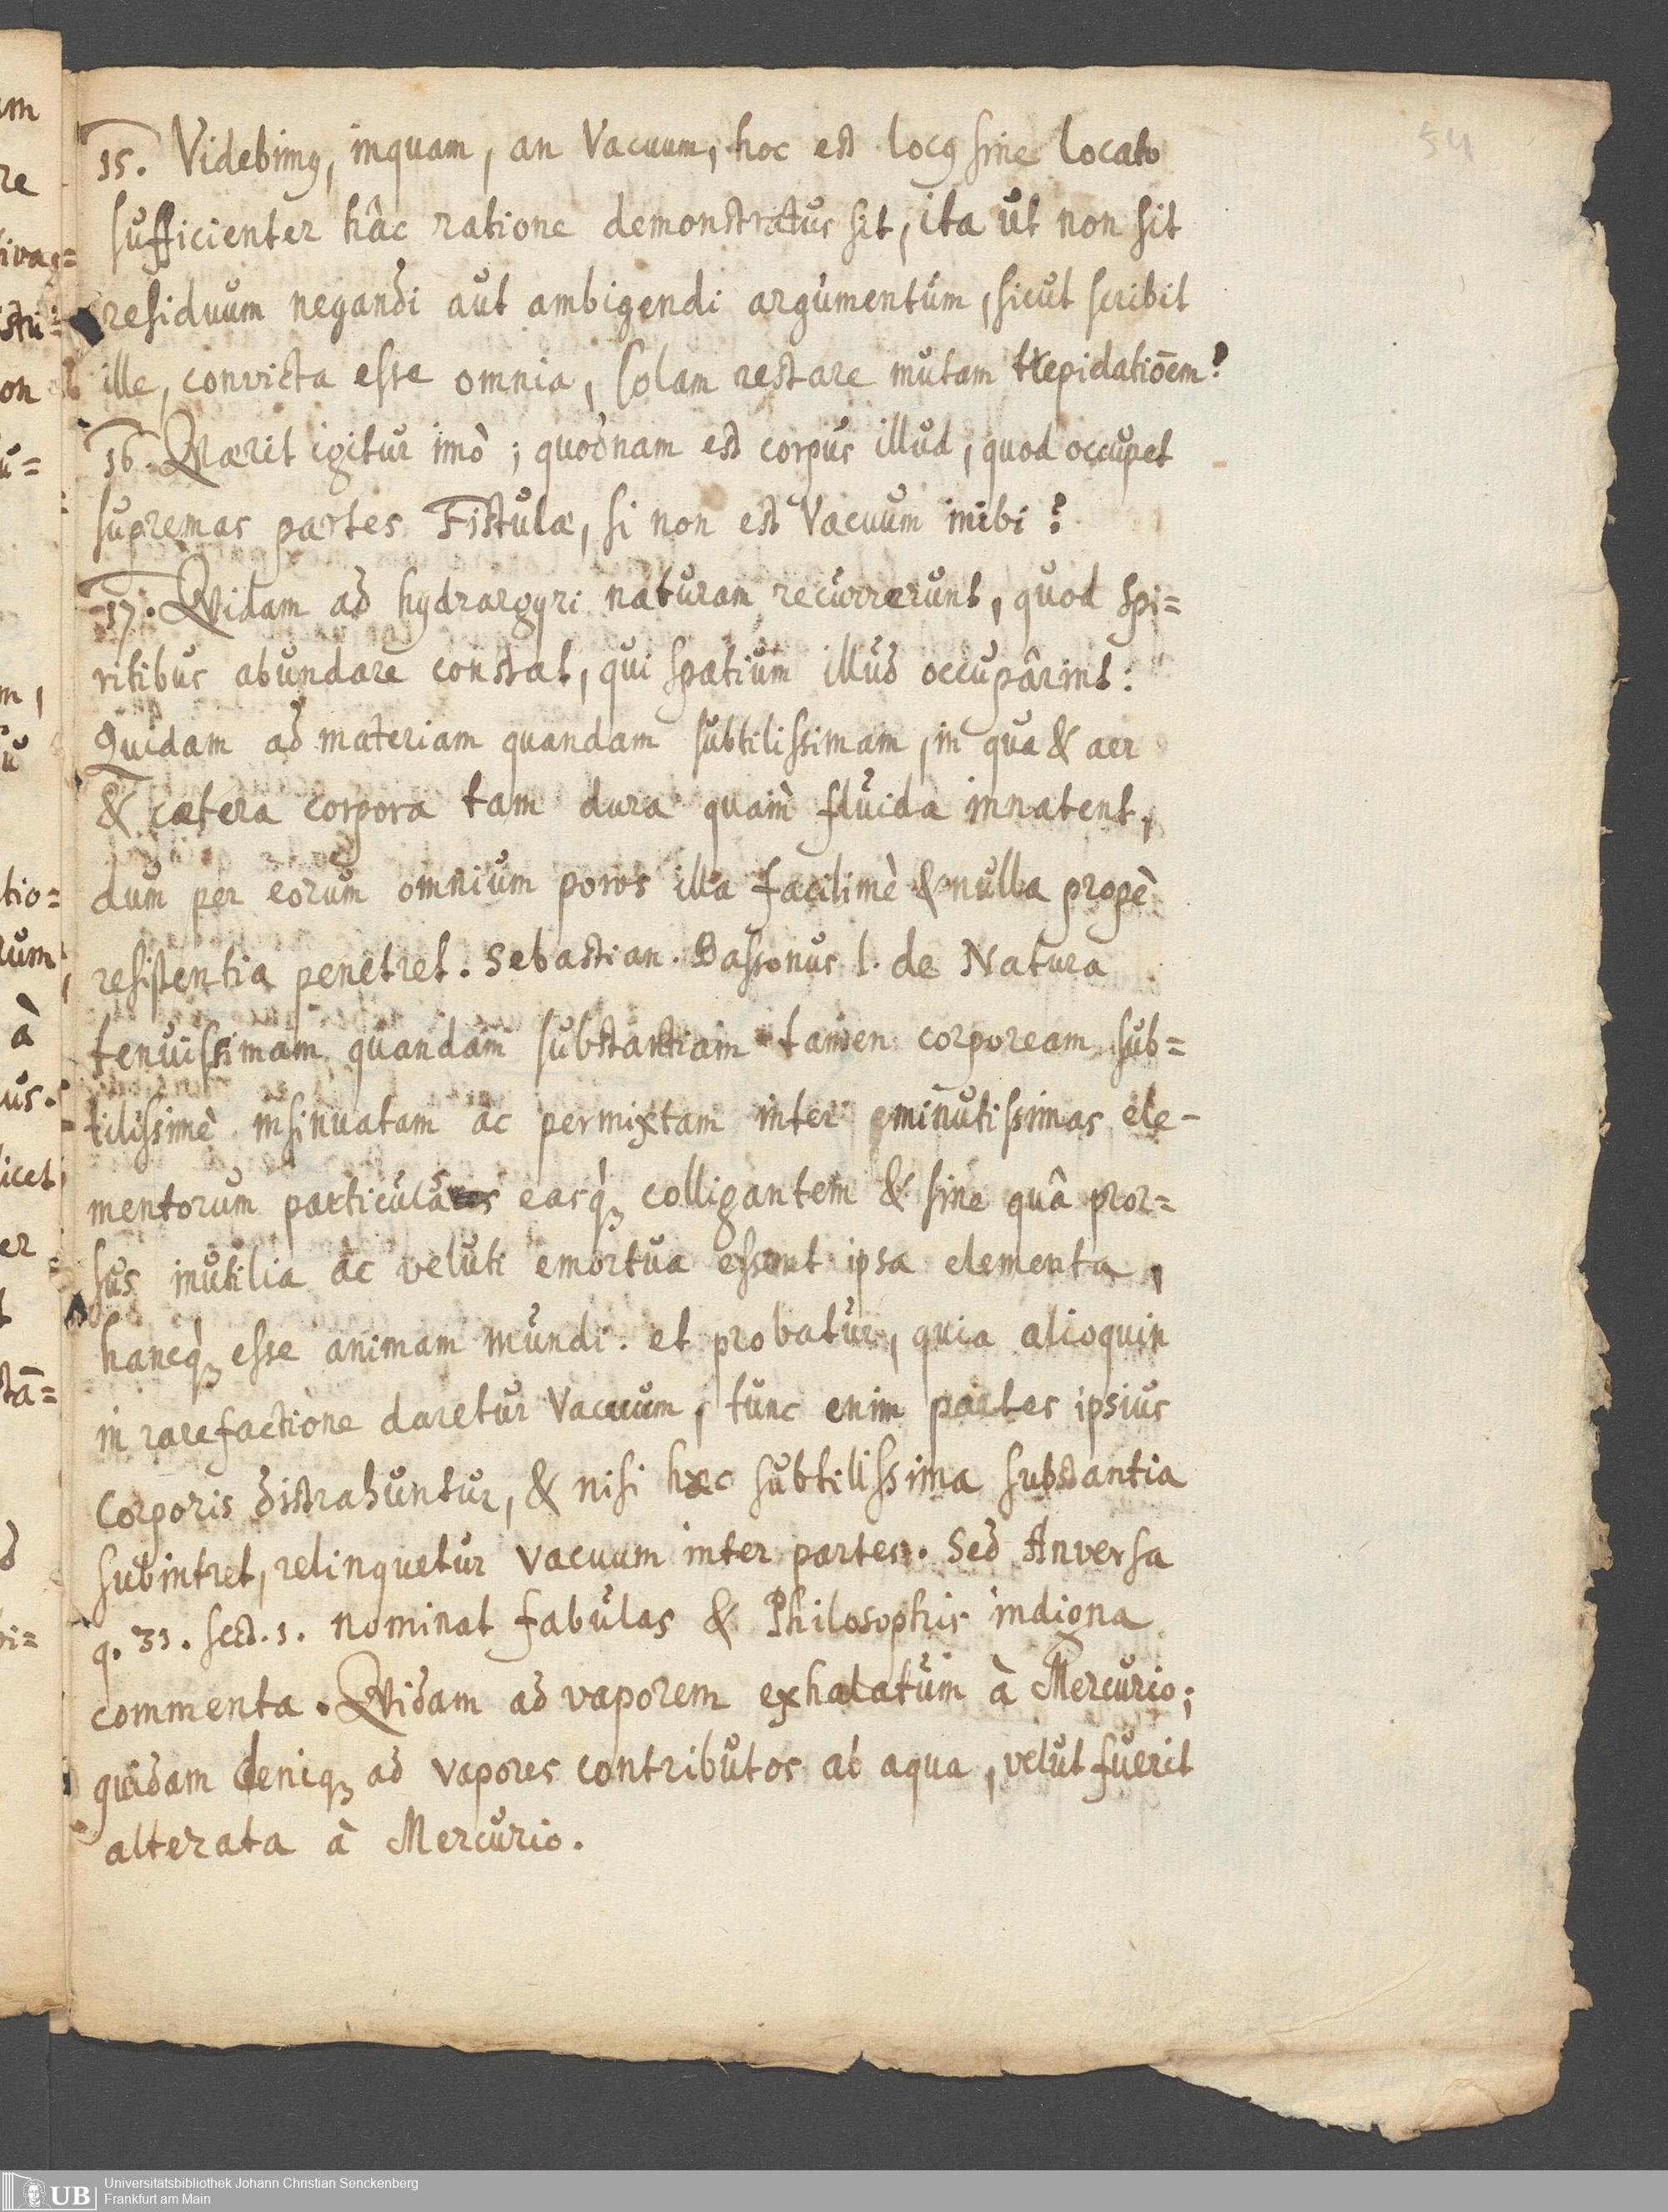 54
15. Videbimꝰ, inquam, an Vacuum, hoc est locꝰ sine locato
sufficienter hâc ratione demonstratus sit, ita ut non sit
residuum negandi aut ambigendi argumentum, sicut scribit
ille, convicta esse omnia, solam restare mutam trepidatiōem?
16. Quærit igitur imò; quodnam est corpus illud, quod occupet
supremas partes Fistulæ, si non est Vacuum inibi?
17. Quidam ad hydrargyri naturam recurrerunt, quod spi=
ritibus abundare constat, qui spatium illud occupârint:
Quidam ad materiam quandam subtilissimam, in qua & aer
& cætera corpora tam dura quàm fluida innatent,
dum per eorum omnium poros illa facilimè & nulla propè
resistentia penetret. Sebastian. Bassonus l. de Natura
tenuissimam quandam substantiam tamen corpoream sub=
tilissimè insinuatam ac permixtam inter minutissimas ele-
mentorum particulas easq́ꝫ colligantem & sine quâ pror=
sus inutilia ac veluti emortua essent ipsa elementa,
hancq́ꝫ esse animam mundi. et probatur, quia alioquin
in rarefactione daretur Vacuum, tunc enim partes ipsius
Corporis distrahuntur, & nisi hæc subtilissima substantia
subintret, relinquetur vacuum inter partes. Sed Anversa
q. 31. sect. 1. nominat fabulas & Philosophis indigna
commenta. Quidam ad vaporem exhalatum à Mercurio;
quidam deniqꝫ ad vapores contributos ab aqua, velut fuerit
alterata à Mercurio.
UB
Universitätsbibliothek Johann Christian Senckenberg
Frankfurt am Main